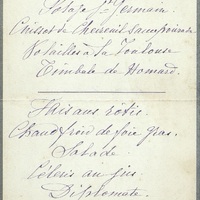 Potage St Germain
Cuissot de Chevreuil Sauce poivrade
Volailles à la Toulouse
Timbale de Homard.
Faisans rôtis.
Chaudfroid de foie gras.
Salade.
Céleris au jus.
Diplomate.